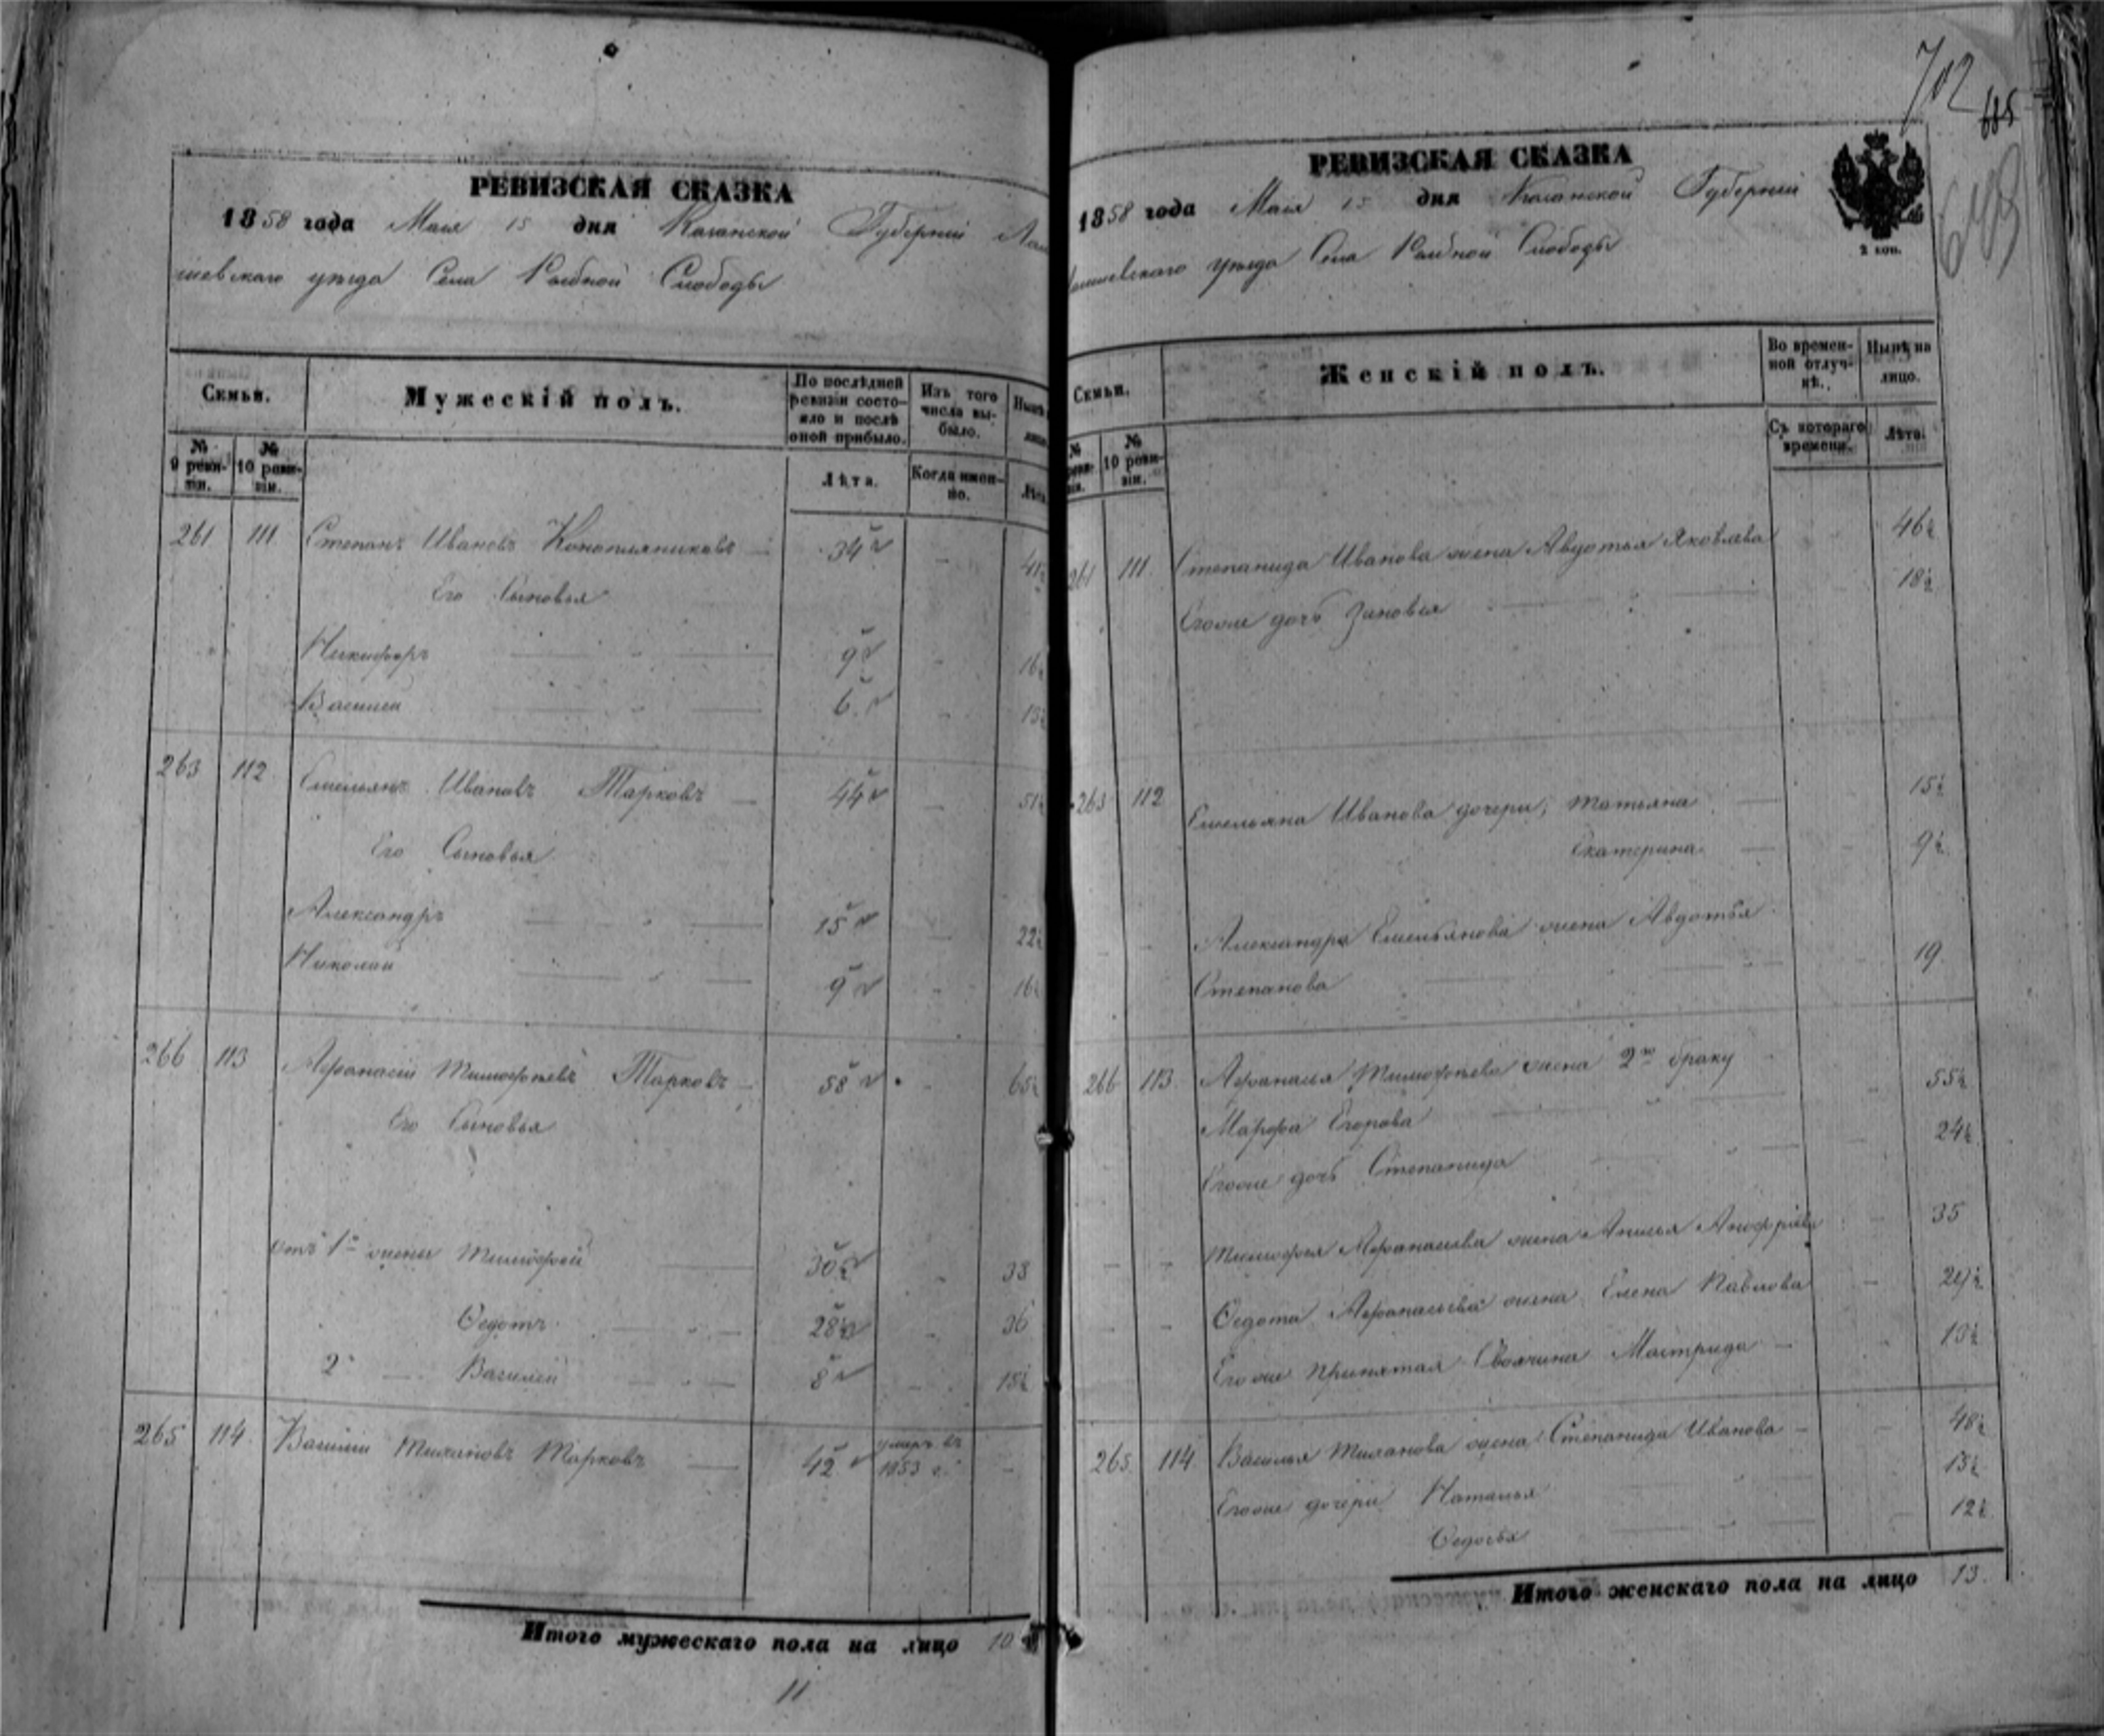 РЕВИЗСКАЯ СКАЗКА
1858 года Мая 15 дня Казанской Губернiи Лаи
шевскаго уѣзда Села Рыбной Слободы
Семьи.
Мужескiй полъ.
По послѣдней ревизiи состояло и послѣ оной прибыло.
Изъ того числа выбыло.
№ 9 ревизiи.
№ 10 ревизiи.
Лѣта.
Когда именно.
261 111 Степанъ Ивановъ Коноплянниковъ 34 41½
Его Сыновья
Никифоръ 9 16½
Василiй 6
263 112 Емельянъ Ивановъ Тарковъ 44 51½
Его Сыновья
Александръ 15 22½
Николай 9 16½
266 113 Афанасiй Тимофѣевъ Тарковъ 58 65½
Его Сыновья
отъ 1й жены Тимофей 30½
Федотъ 28½ 36
2й Василiй 8 15½
265 114 Василiй Тарковъ 42 умеръ въ 1853 г.
Итого мужескаго пола на лицо 10
11
702
РЕВИЗСКАЯ СКАЗКА
1858 года Мая 15 дня Казанской Губернiи
Лаишевскаго уѣзда Села Рыбной Слободы
2 коп.
Семьи.
Женскiй полъ.
Во временной отлучкѣ.
Нынѣ на лицо.
№ 10 ревизiи.
Съ котораго времени.
Лѣта.
261 111 Иванова жена Авдотья Яковлева 46½
Егоже дочь Зиновья 18½
263 112 Емельяна Иванова дочери, Татьяна 15½
Екатерина 9½
Александра Емельянова жена Авдотья
Степанова 19
266 113 Афанасья Тимофѣева жена 2го браку
Марфа Егорова 55½
Егоже дочь Степанида 24½
Тимофея Афанасьева жена 35
Федота Афанасьева жена Елена Павлова 29½
Егоже принятая Своячина
265 114 Василья жена Степанида Иванова 48½
Егоже дочери Наталья 15½
Федосья 12½
Итого женскаго пола на лицо 13.